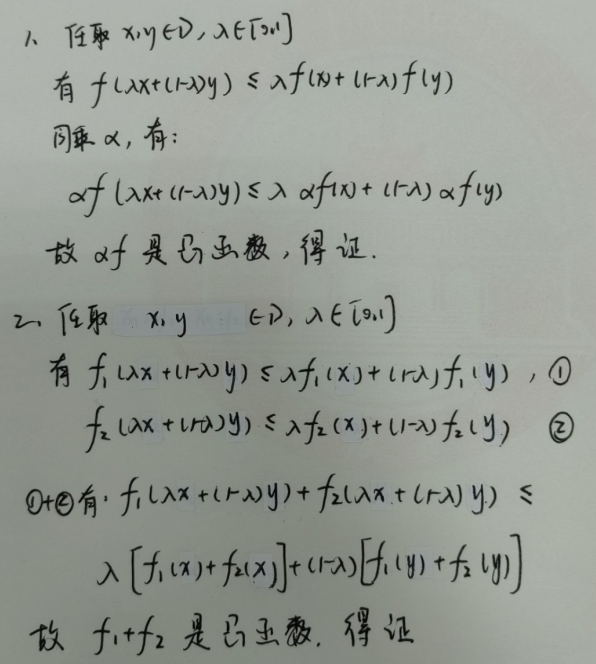 1、任取 x,y∈D, λ∈[0,1]
有 f(λx+(1-λ)y) ≤ λf(x)+(1-λ)f(y)
同乘 α, 有:
αf(λx+(1-λ)y) ≤ λ αf(x)+(1-λ) αf(y)
故 αf 是凸函数, 得证.
2、任取 x, y ∈D, λ∈[0,1]
有 f₁(λx+(1-λ)y) ≤ λf₁(x)+(1-λ)f₁(y), ①
f₂(λx+(1-λ)y) ≤ λf₂(x)+(1-λ)f₂(y) ②
①+②有: f₁(λx+(1-λ)y)+f₂(λx+(1-λ)y) ≤
λ[f₁(x)+f₂(x)]+(1-λ)[f₁(y)+f₂(y)]
故 f₁+f₂ 是凸函数. 得证